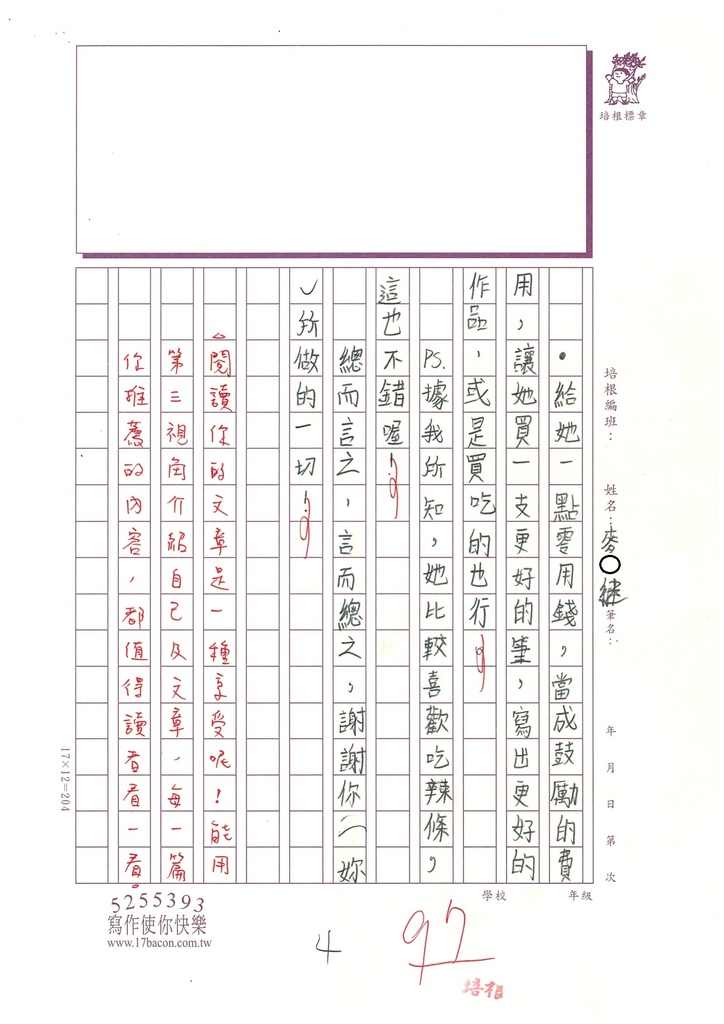 培根標章
培根編班：
姓名：麥○繼
筆名：
年　月　日　第　次
學校　年級
•給她一點零用錢，當成鼓勵的費
用，讓她買一支更好的筆，寫出更好的
作品，或是買吃的也行。
PS.據我所知，她比較喜歡吃辣條，
這也不錯喔！
總而言之，言而總之，謝謝你（妳
）所做的一切！
閱讀你的文章是一種享受呢！能用
第三視角介紹自己及文章，每一篇
你推薦的內容，都值得讀者看一看。
17×12=204
5255393
寫作使你快樂
www.17bacon.com.tw
4
97
培根